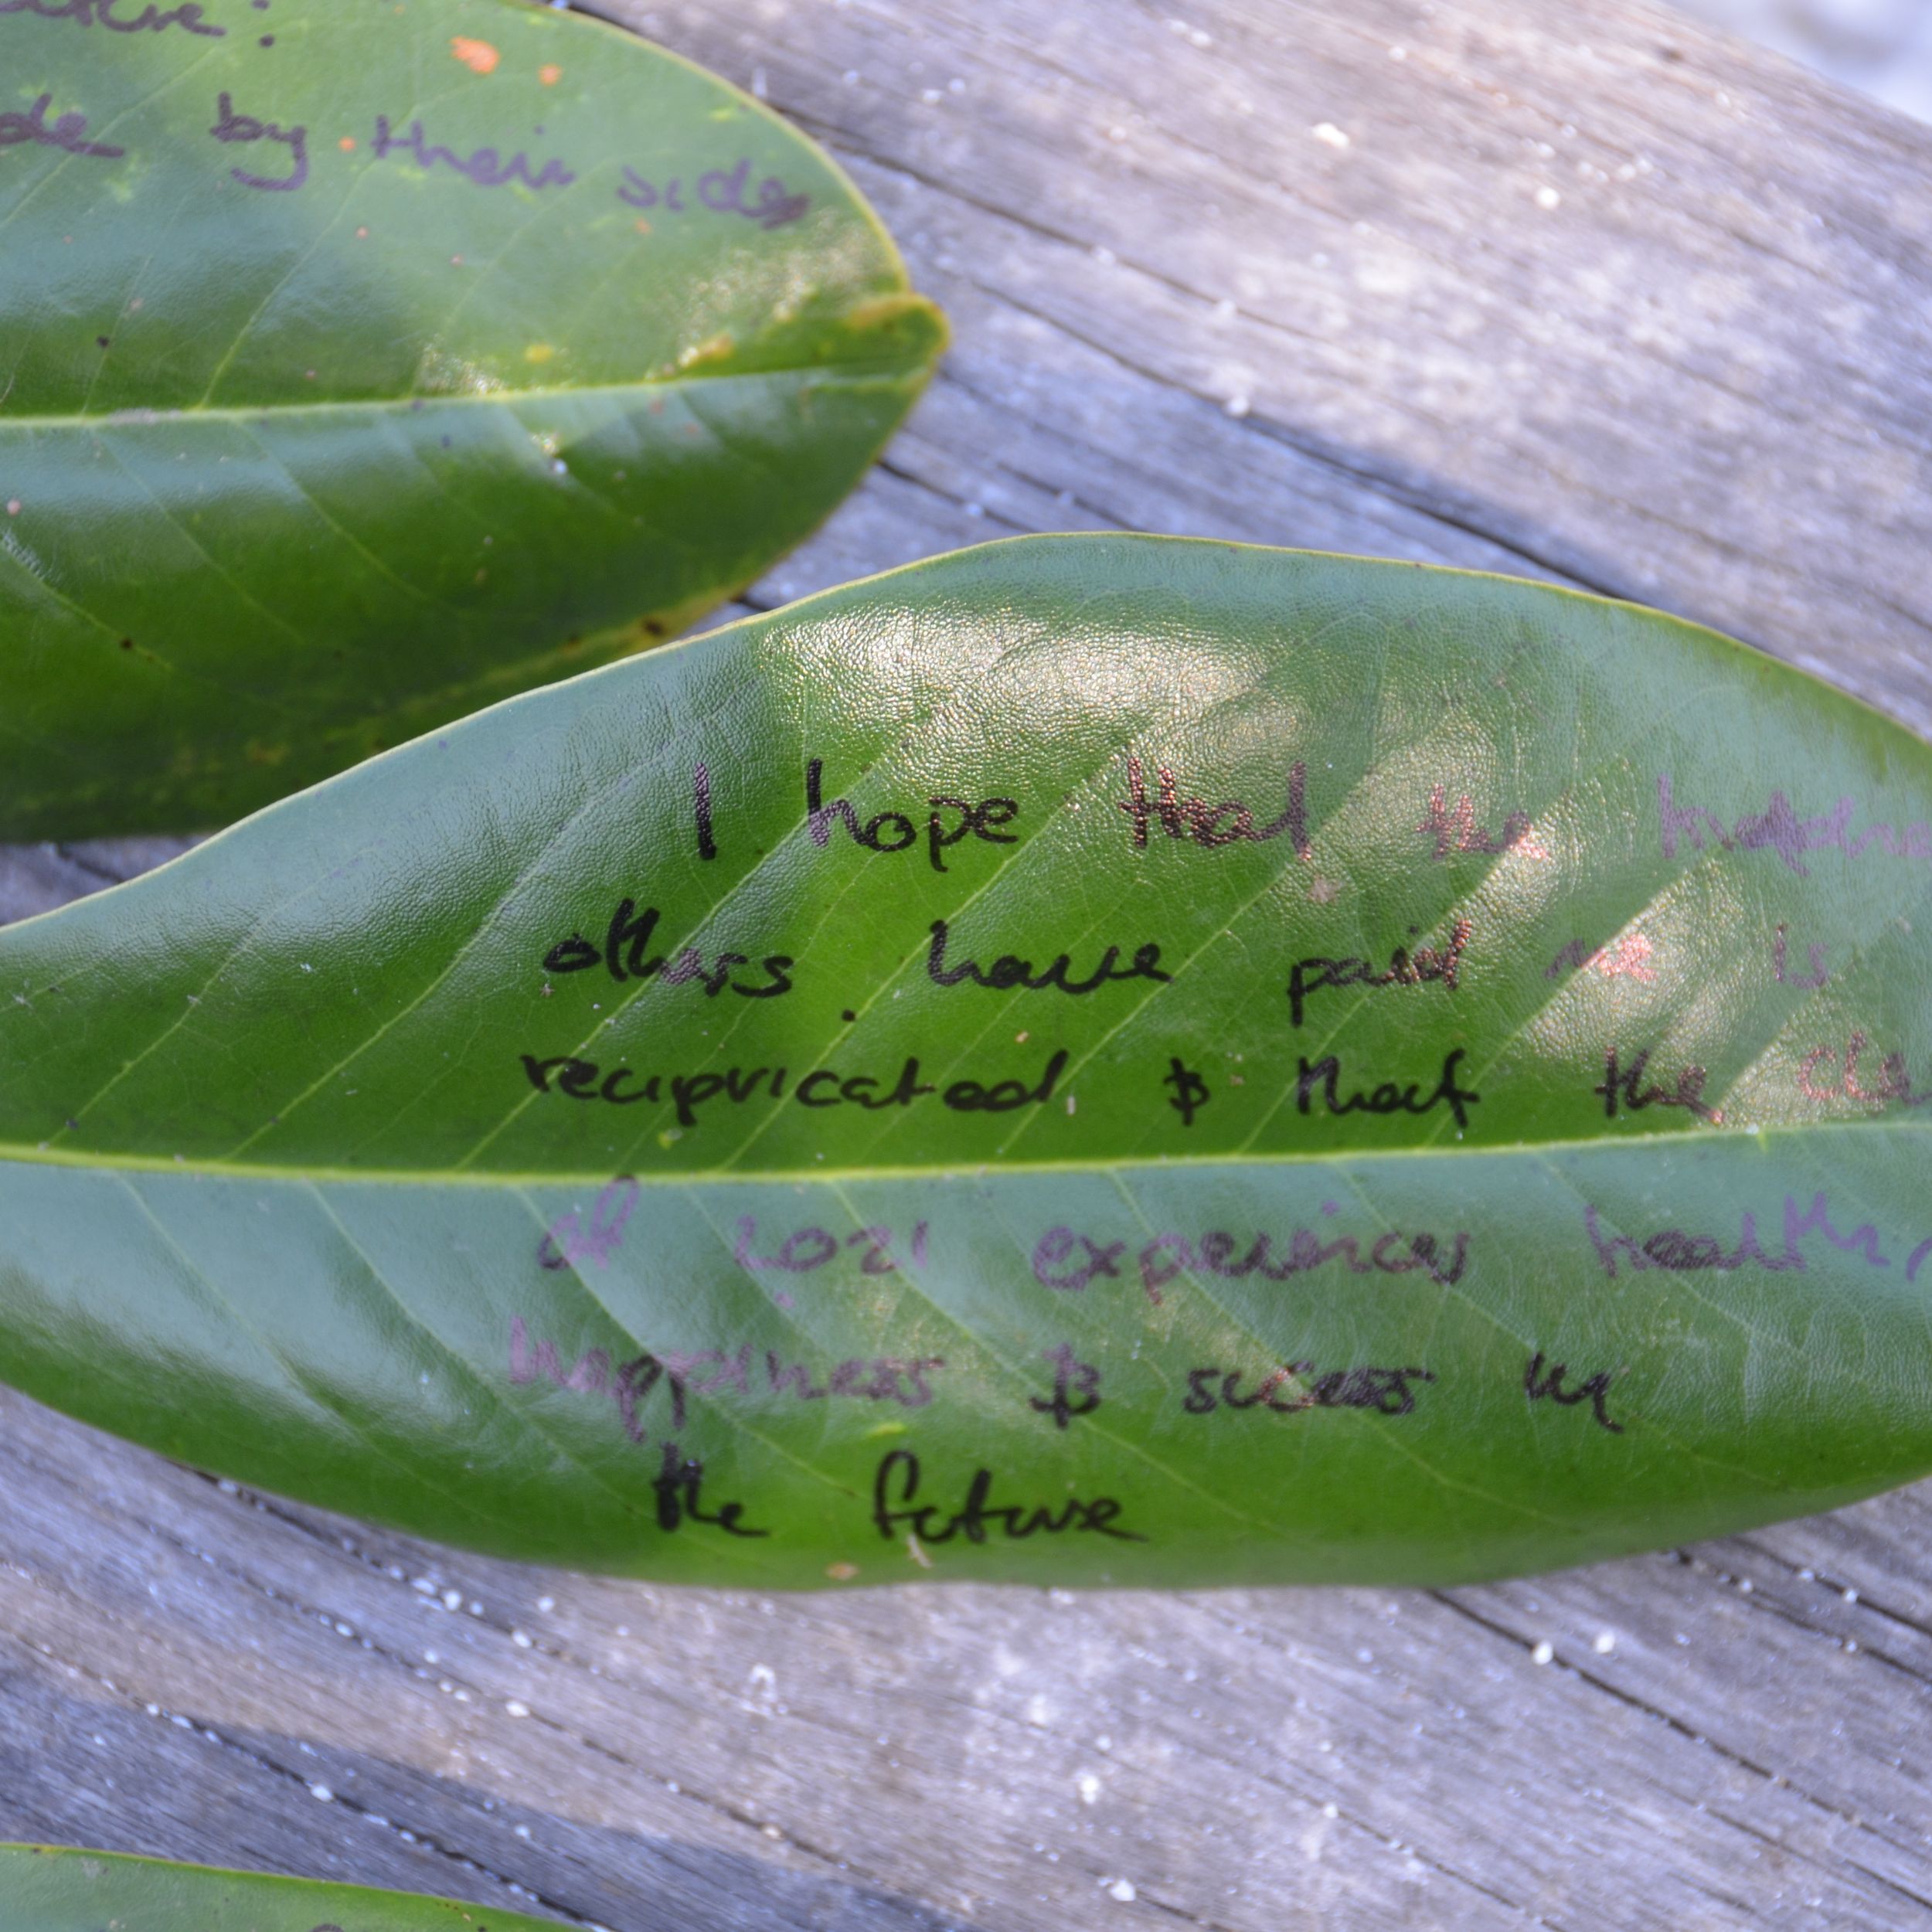 de by their sides
I hope that the
others have paid me is
recipricated & that the
of 2021 experiences health,
happiness & sucess in
the future